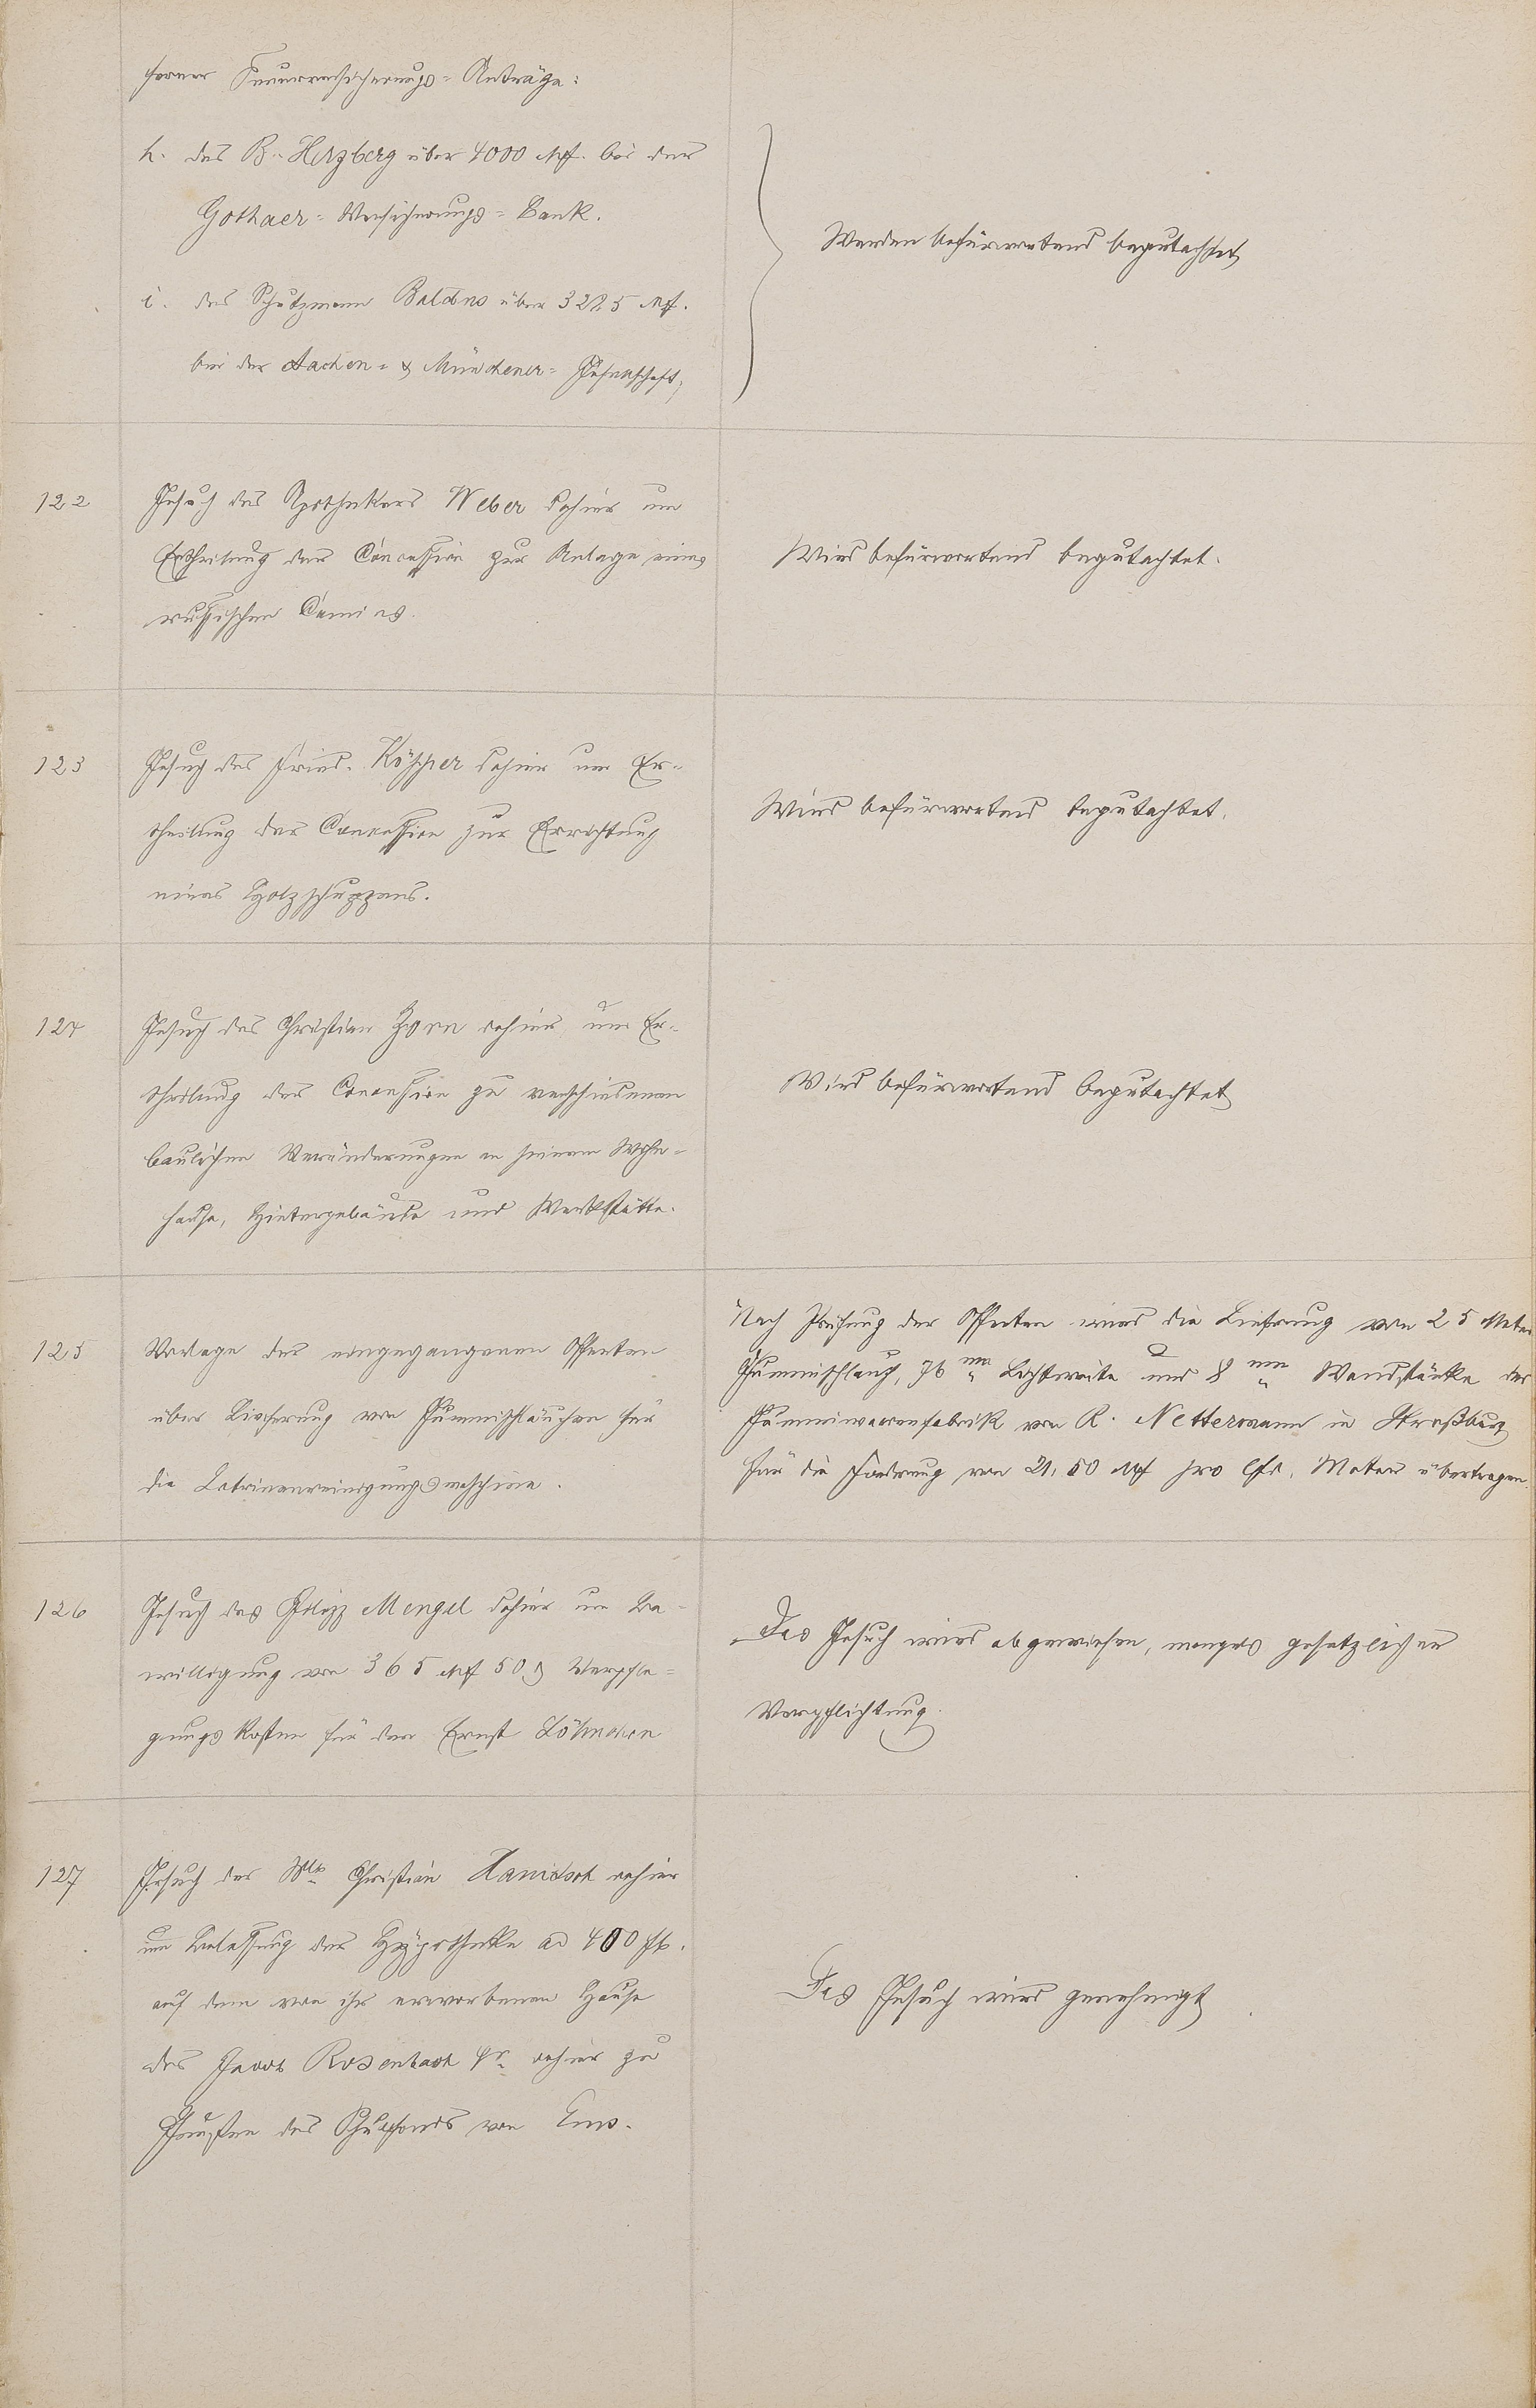 ferner Feuerversicherungs-Anträge:
h. des B. Herzberg über 4000 Mk. bei der
Gothaer-Versicherungs-Bank.
i. des Schutzmann Baldus über 3225 Mk.
bei der Aachen- & Münchener-Gesellschaft,
Werden befürwortend begutachtet
122
Gesuch des Apothekers Weber dahier um
Ertheilung der Concession zur Anlage eines
russischen Camines.
Wird befürwortend begutachtet.
123
Gesuch des Fried. Köpper dahier um Er-
theilung der Concession zur Errichtung
eines Holzschuppens.
Wird befürwortend begutachtet.
124
Gesuch des Christian Zorn dahier um Er-
theilung der Concession zu verschiedenen
baulichen Veränderungen in seinem Wohn-
hause, Hintergebäude und Werkstätte.
Wird befürwortend begutachtet
125
Vorlage der eingegangenen Offerten
über Lieferung von Gummischläuchen für
die Latrinenreinigungsmaschine.
Nach Prüfung der Offerten wird die Lieferung von 25 Meter
Gummischlauch, 76 mm Lichtweite und 8 mm Wandstärke der
Gummiwaarenfabrik von R. Nettermann in Straßburg
für die Forderung von 21,50 Mk pro lfd. Meter übertragen.
126
Gesuch des Philipp Mengel dahier um Be-
willigung von 365 Mk 50 ₰ Verpfle-
gungskosten für den Ernst Löhnchen
Das Gesuch wird abgewiesen, mangels gesetzlicher
Verpflichtung.
127
Gesuch der Wb Christian dahier
um Belassung der Hypotheke ad 400 fl.
auf dem von ihr erworbenen Hause
des Jacob Rosenbach dahier zu
Gunsten des Schulfonds von Ems.
Das Gesuch wird genehmigt